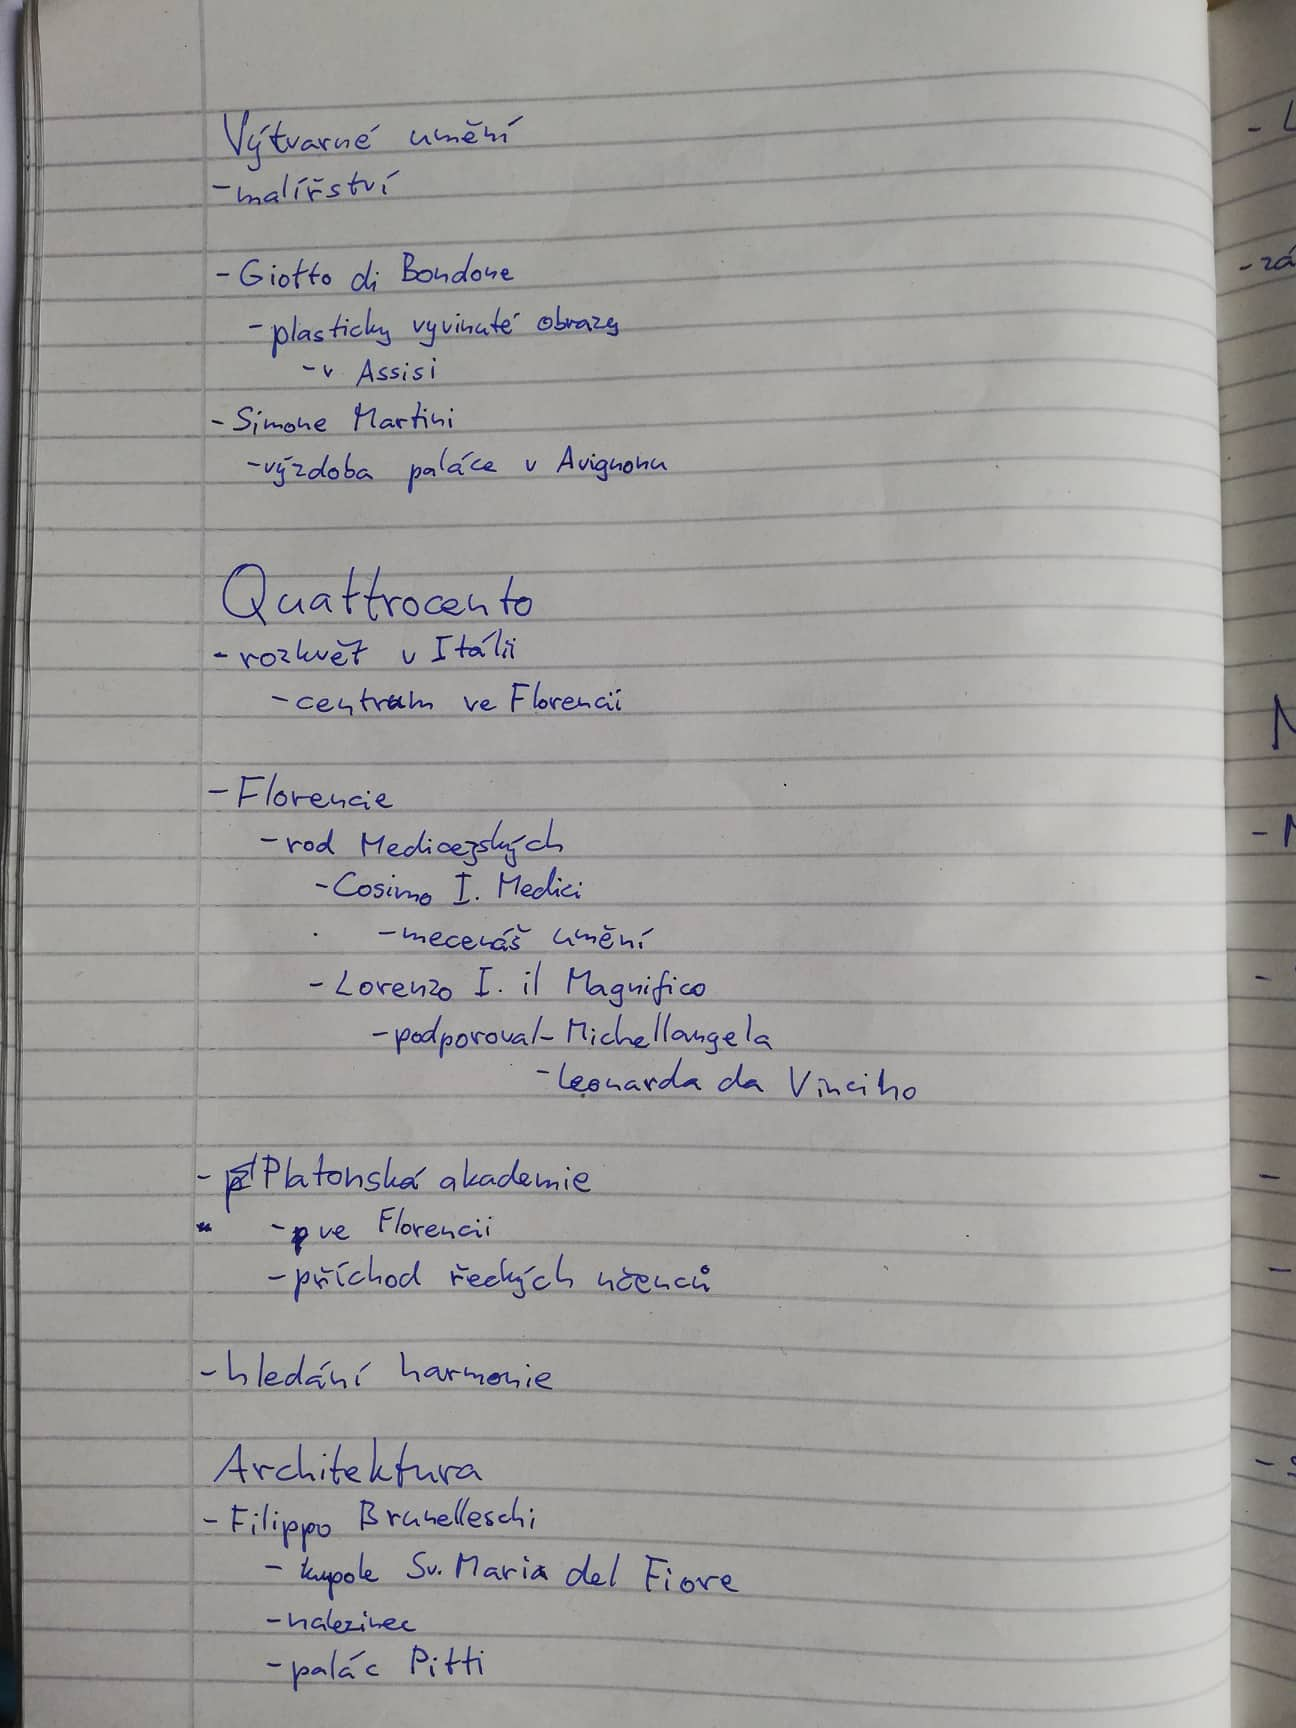 Výtvarné umění
-malířství
- Giotto di Bondone
- plasticky vyvinuté obrazy
- v Assisi
- Simone Martini
- výzdoba paláce v Avignonu
Quattrocento
- rozkvět v Itálii
- centrum ve Florencii
- Florencie
- rod Medicejských
- Cosimo I. Medici
- mecenáš umění
- Lorenzo I. il Magnifico
- podporoval - Michellangela
- Leonarda da Vinciho
- Platonská akademie
- ve Florencii
- příchod řeckých učenců
- hledání harmonie
Architektura
- Filippo Brunelleschi
- kupole Sv. Maria del Fiore
- nalezinec
- palác Pitti